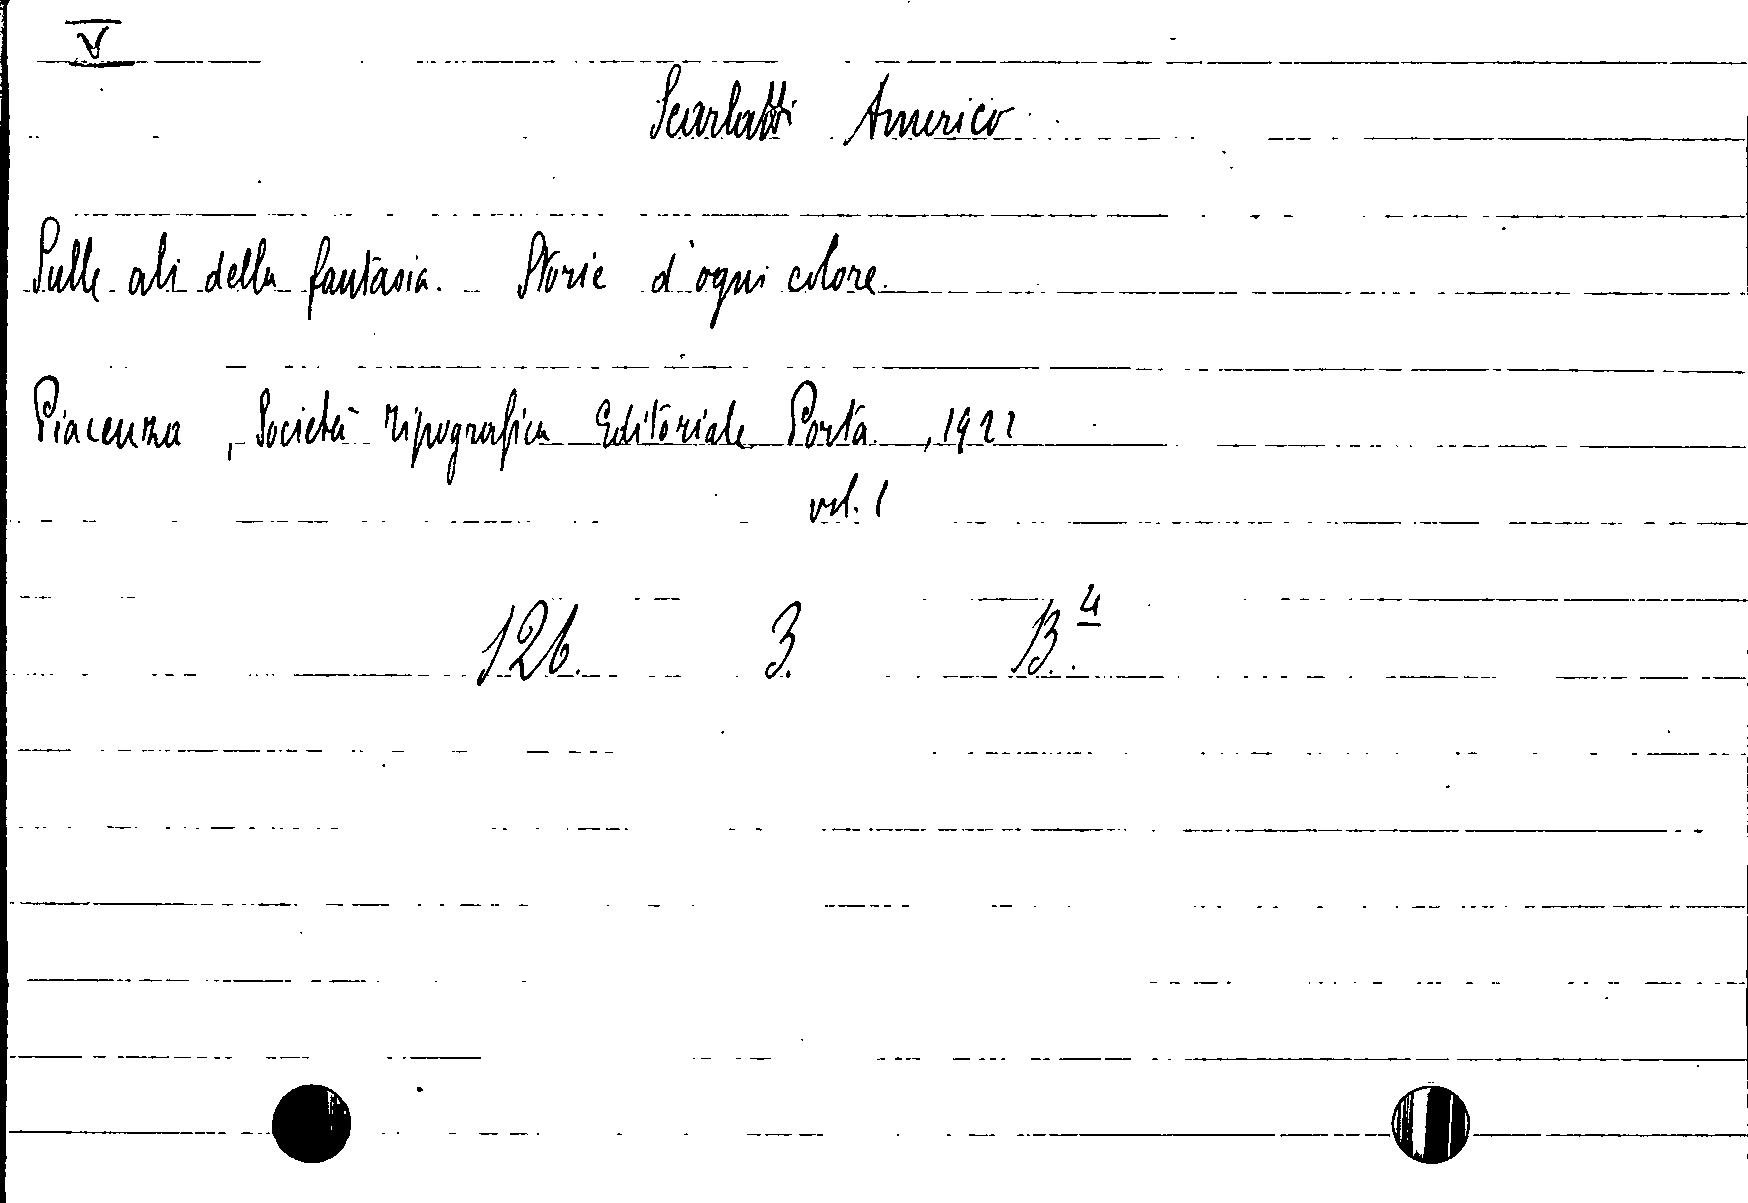 V
Scarlatti Americo
Sulle ali della fantasia. Storie d'ogni colore.
Piacenza, Società Tipografica Editoriale Porta, 1922
vol. 1
126. 3. B.4